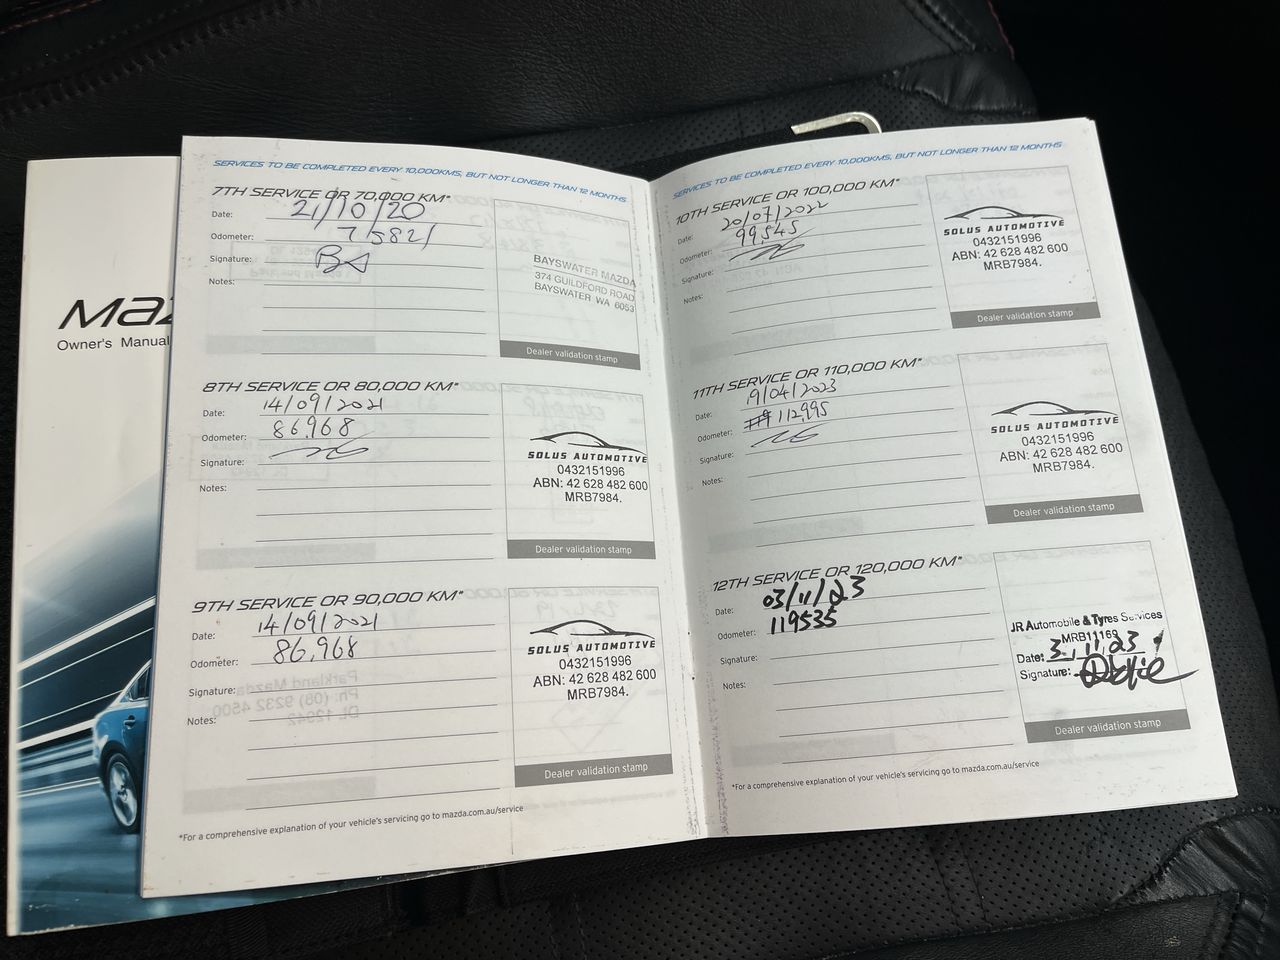 Maz
Owner's Manual
SERVICES TO BE COMPLETED EVERY 10,000KMS, BUT NOT LONGER THAN 12 MONTHS
7TH SERVICE OR 70,000 KM*
Date: 21/10/20
Odometer: 75821
Signature:
Notes:
BAYSWATER MAZDA
374 GUILDFORD ROAD
BAYSWATER WA 6053
Dealer validation stamp
8TH SERVICE OR 80,000 KM*
Date: 14/09/2021
Odometer: 86,968
Signature:
Notes:
SOLUS AUTOMOTIVE
0432151996
ABN: 42 628 482 600
MRB7984.
Dealer validation stamp
9TH SERVICE OR 90,000 KM*
Date: 14/09/2021
Odometer: 86,968
Signature:
Notes:
Parkland Mazda
Ph: (08) 9232 4500
DL 12942
SOLUS AUTOMOTIVE
0432151996
ABN: 42 628 482 600
MRB7984.
Dealer validation stamp
*For a comprehensive explanation of your vehicle's servicing go to mazda.com.au/service
SERVICES TO BE COMPLETED EVERY 10,000KMS, BUT NOT LONGER THAN 12 MONTHS
10TH SERVICE OR 100,000 KM*
Date: 20/07/2022
Odometer: 99,545
Signature:
Notes:
SOLUS AUTOMOTIVE
0432151996
ABN: 42 628 482 600
MRB7984.
Dealer validation stamp
11TH SERVICE OR 110,000 KM*
Date: 19/04/2023
Odometer: 112,995
Signature:
Notes:
SOLUS AUTOMOTIVE
0432151996
ABN: 42 628 482 600
MRB7984.
Dealer validation stamp
12TH SERVICE OR 120,000 KM*
Date: 03/11/23
Odometer: 119535
Signature:
Notes:
JR Automobile & Tyres Services
MRB11169
Date: 3,11,23
Signature:
Dealer validation stamp
*For a comprehensive explanation of your vehicle's servicing go to mazda.com.au/service